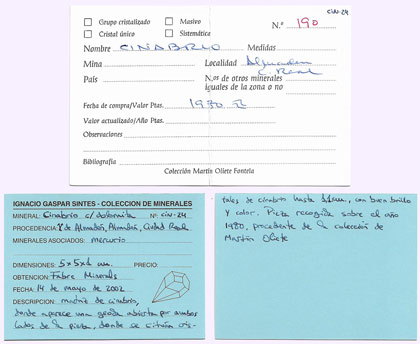 CIN-24
Grupo cristalizado Masivo N.º 190
Cristal único Sistemática
Nombre CINABRIO Medidas
Mina Localidad Almaden
C. Real
País N.os de otros minerales
iguales de la zona o no
Fecha de compra/Valor Ptas. 1980
Valor actualizado/Año Ptas.
Observaciones
Bibliografía
Colección Martín Oliete Fontela
IGNACIO GASPAR SINTES - COLECCION DE MINERALES
MINERAL: Cinabrio c/ dolomita Nº: CIN-24
PROCEDENCIA: Yº de Almadén, Almadén, Ciudad Real
MINERALES ASOCIADOS: mercurio
DIMENSIONES: 5x5x4 cm. PRECIO:
OBTENCION: Fabre Minerals
FECHA: 14 de mayo de 2002
DESCRIPCION: matriz de cinabrio,
donde aparece una geoda abierta por ambos
lados de la pieza, donde se sitúan cris-
tales de cinabrio hasta cm, con buen brillo
y color. Pieza recogida sobre el año
1980, procedente de la colección de
Martín Oliete